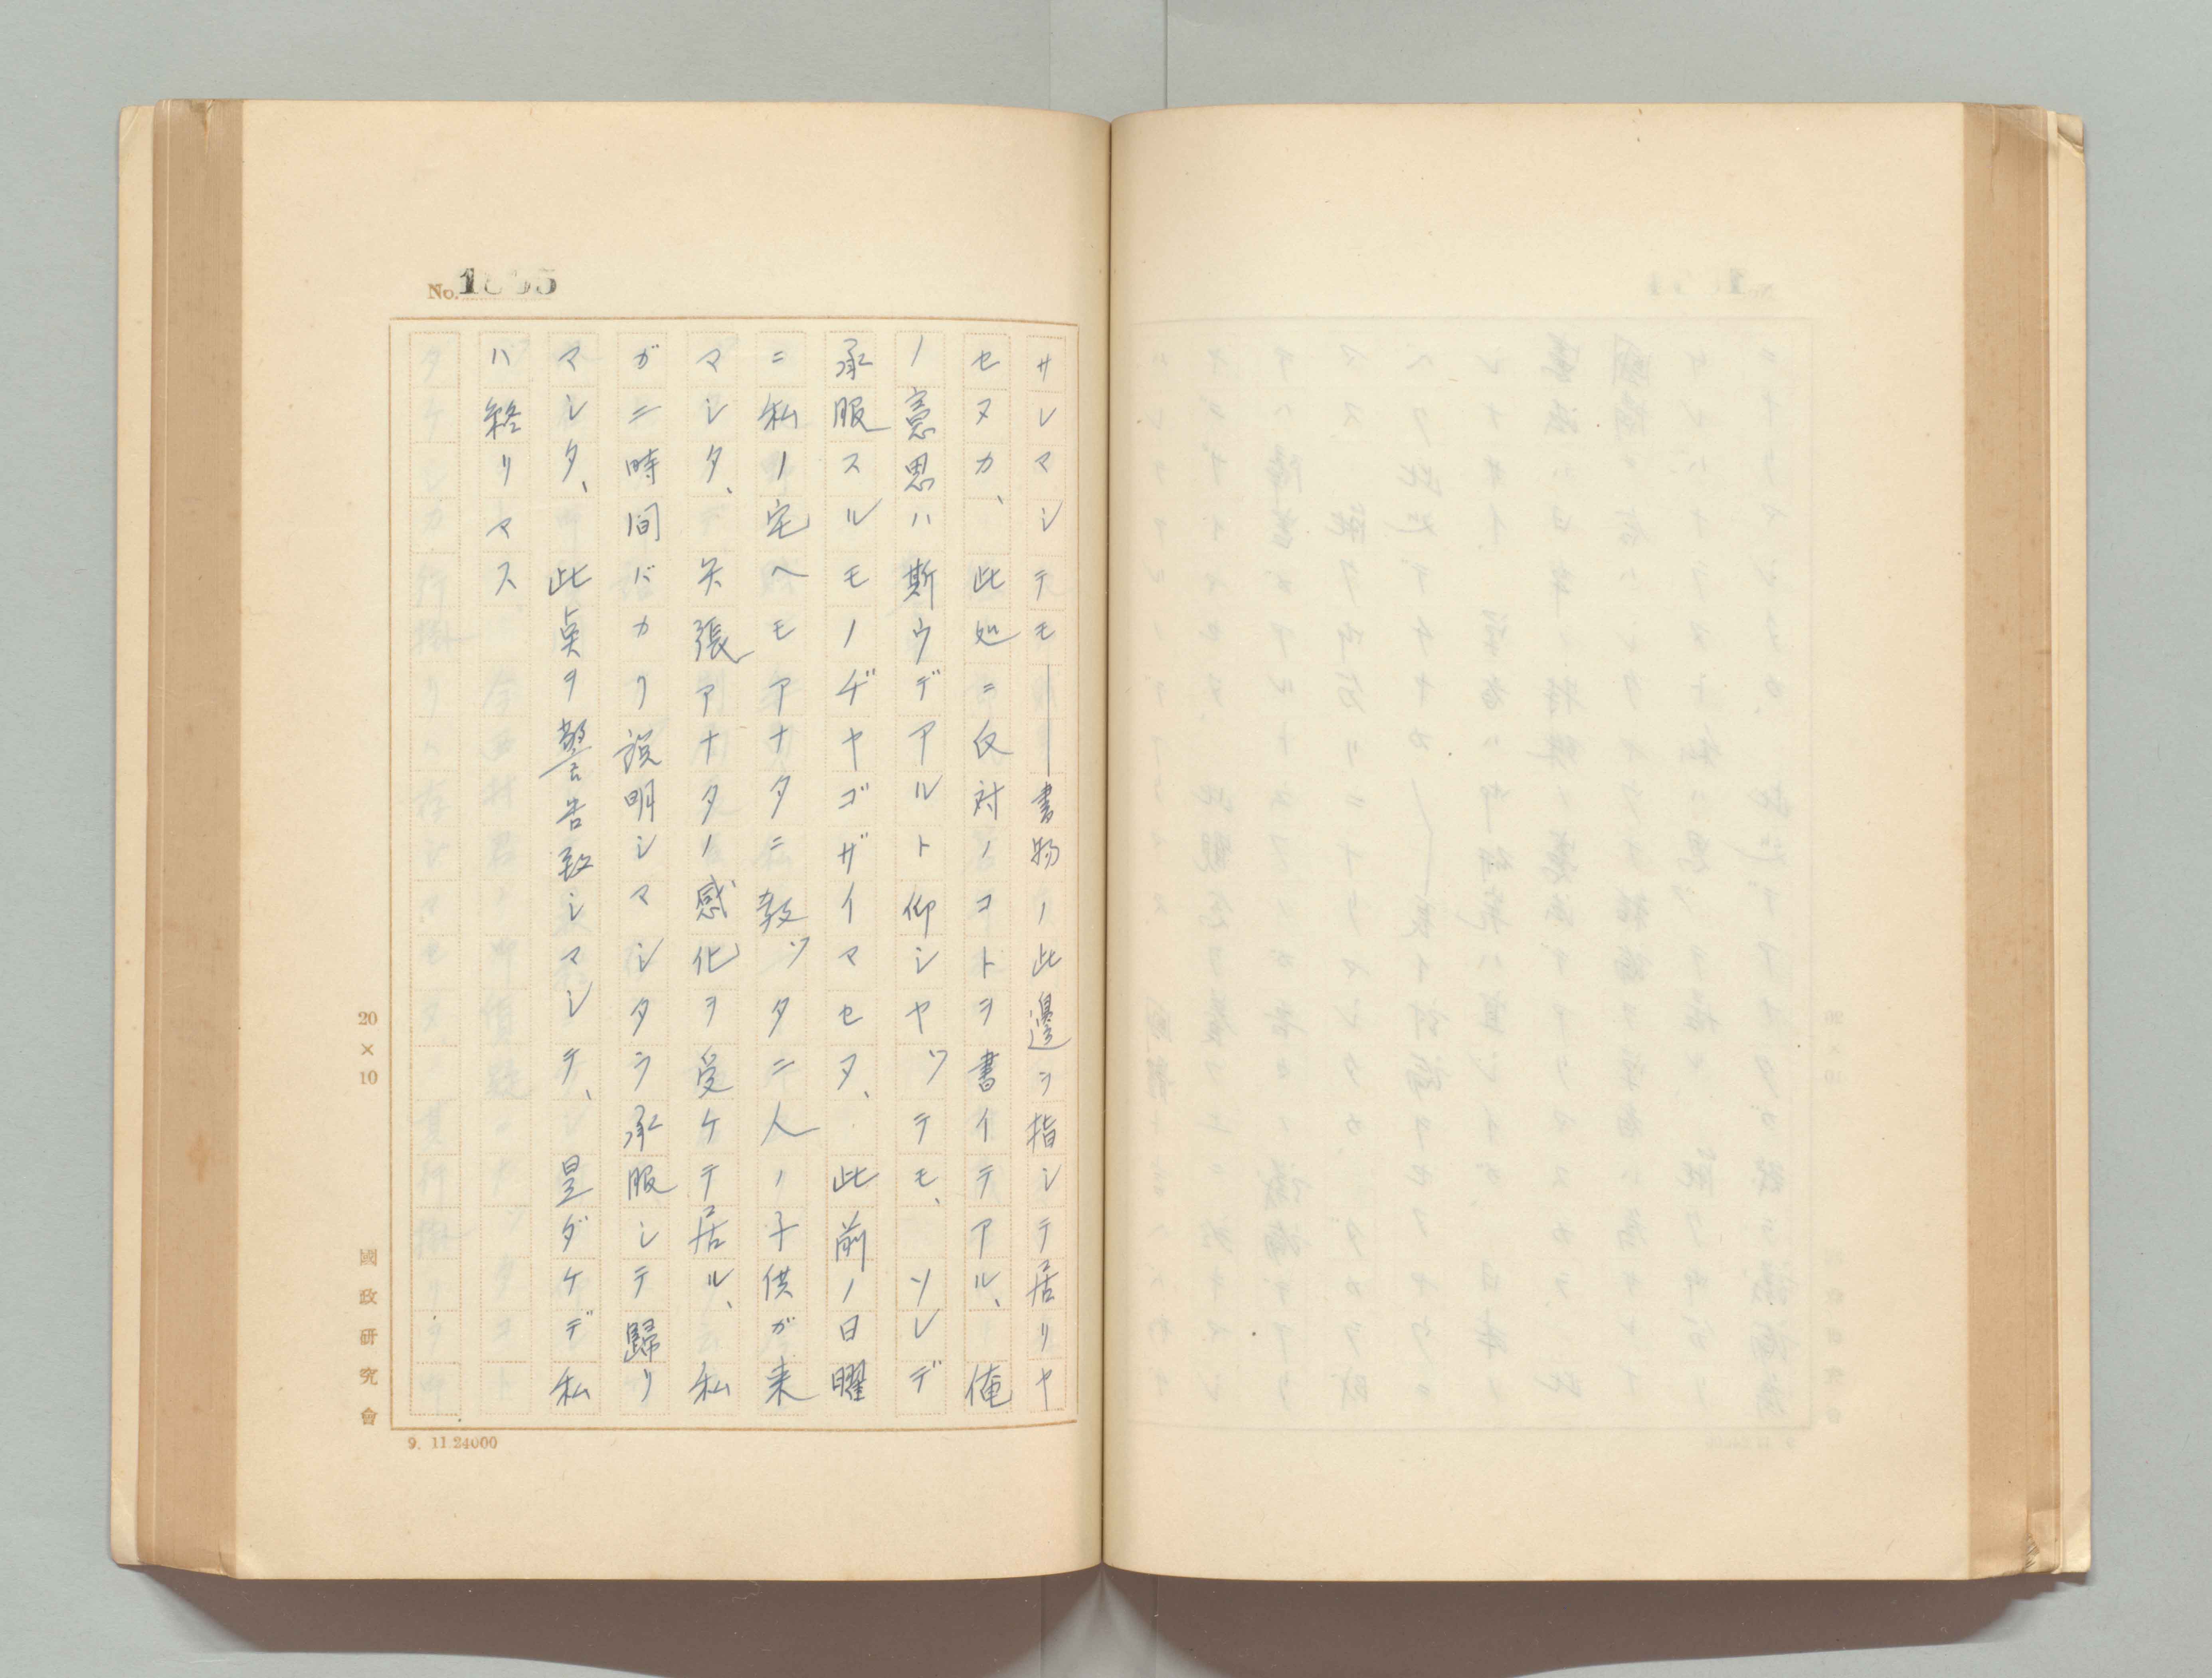 サレマシテモ――書物ノ此邊ヲ指シテ居リヤ
セヌカ、此処ニ反対ノコトヲ書イテアル、俺
ノ意思ハ斯ウデアルト仰シヤツテモ、ソレデ
承服スルモノヂヤゴザイマセヌ、此前ノ日曜
ニ私ノ宅ヘモアナタニ教ツタ二人ノ子供ガ来
マシタ、矢張アナタノ感化ヲ受ケテ居ル、私
ガ二時間バカリ説明シマシタラ承服シテ歸リ
マシタ、此点ヲ警告致シマシテ、是ダケデ私
ハ終リマス
No.
20×10
國政研究會
9. 11.24000